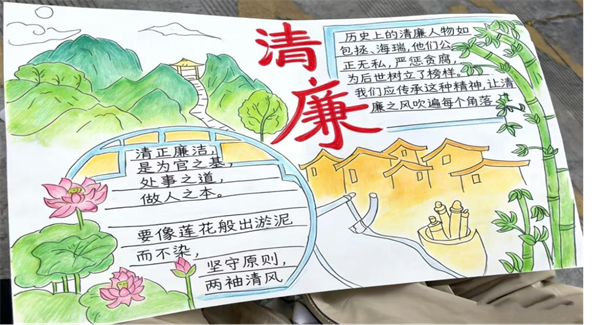 清廉
历史上的清廉人物如
包拯、海瑞,他们公
正无私,严惩贪腐,
为后世树立了榜样。
我们应传承这种精神,让清
廉之风吹遍每个角落
清正廉洁,
是为官之基,
处事之道,
做人之本。
要像莲花般出淤泥
而不染,
坚守原则,
两袖清风